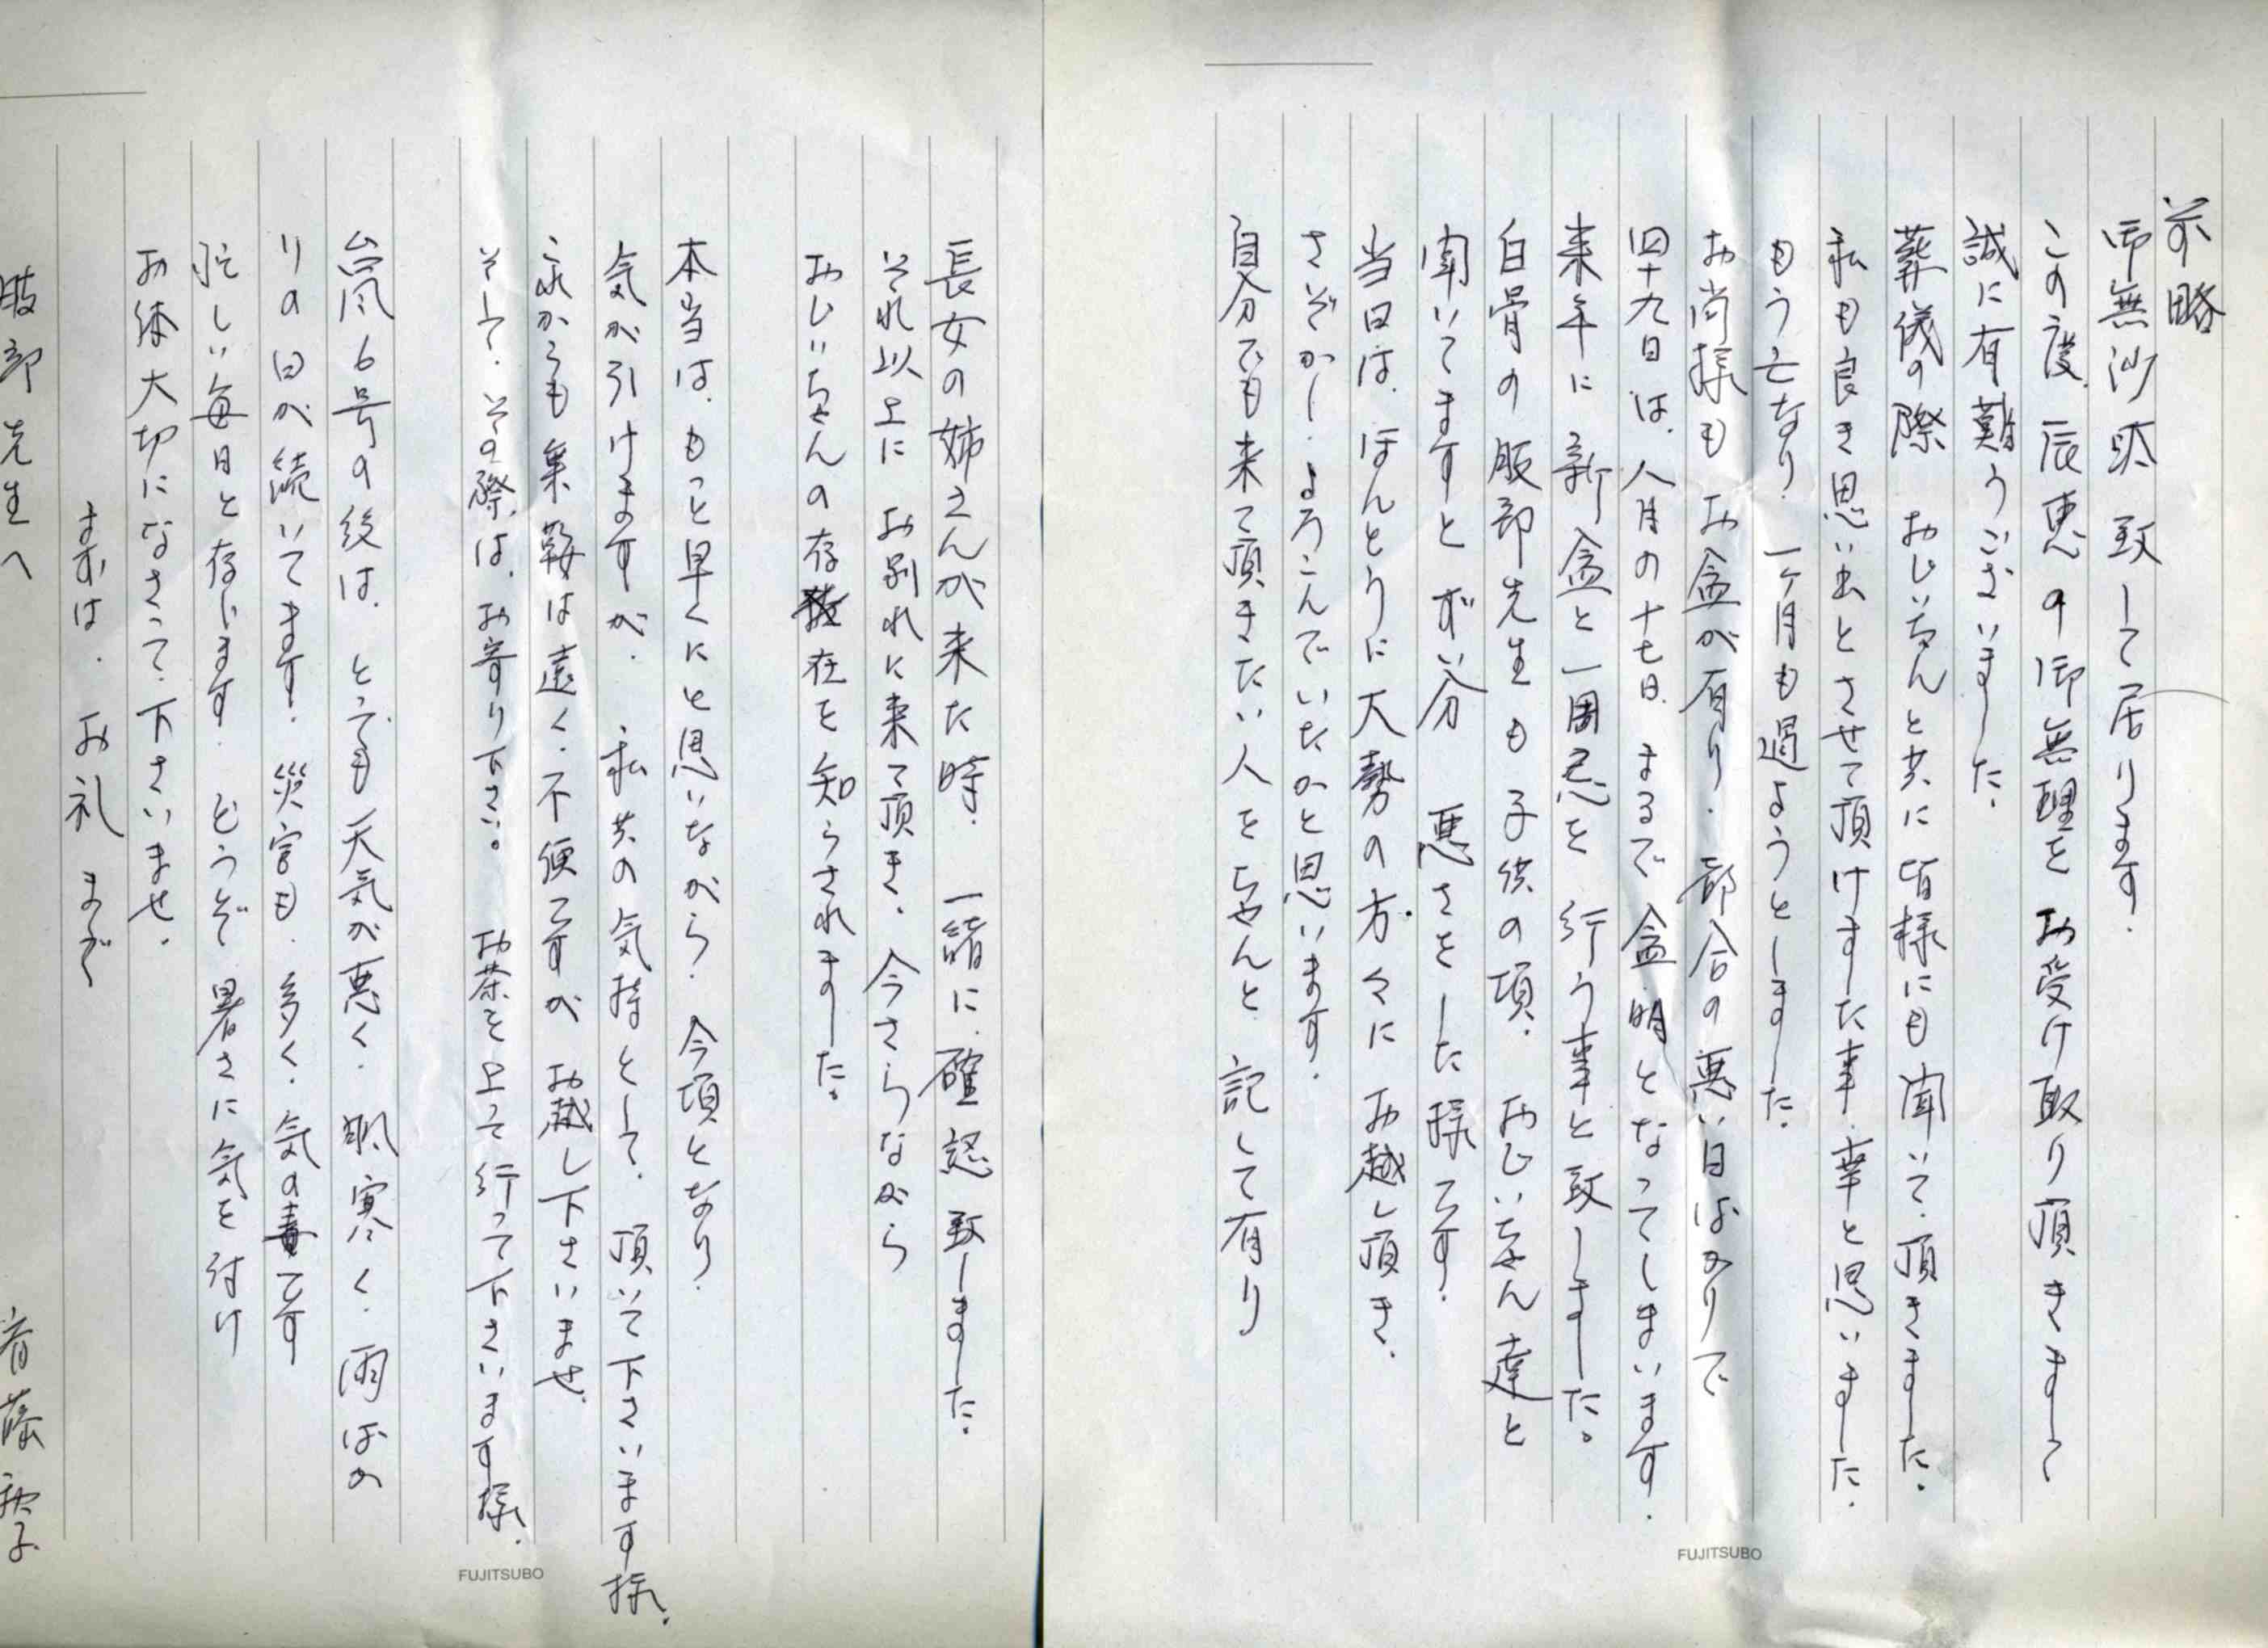 前略
御無沙汰致して居ります.
この度、辰恵の御無理をお受け取り頂きまして
誠に有難うございました.
葬儀の際 おじいちゃんと共に皆様にも聞いて.頂きました.
私も良き思い出とさせて頂けました事.幸と思いました.
もう亡なり.一ヶ月も過ようとしました.
お尚様も お盆が有り.都合の悪い日ばかりで
四十九日は、八月の十七日、まるで盆明となってしまいます.
来年に新盆と一周忌を 行う事と致しました。
白骨の服部先生も子供の頃. おじいちゃん達と
聞いてますと ずい分 悪さをした様です.
当日は、ほんとうに大勢の方々に お越し頂き.
さぞかし.よろこんでいたかと思います.
自分でも来て頂きたい人をちゃんと 記して有り
長女の姉さんが来た時. 一緒に.確認致しました.
それ以上に お別れに来て頂き. 今さらながら
おじいちゃんの存在を知らされました.
本当は.もっと早くにと思いながら. 今頃となり.
気が引けますが. 私共の気持として. 頂いて下さいます様.
これからも乗鞍は遠く.不便ですが お越し下さいませ.
そして.その際は、お寄り下さい。 お茶を上って行って下さいます様.
台風6号の後は. とっても天気が悪く. 肌寒く. 雨ばか
りの日が続いてます.災害も.多く.気の毒です
忙しい毎日と存じます. どうぞ 暑さに気を付け
お体大切になさって.下さいませ.
まずは. お礼まで
服部先生へ